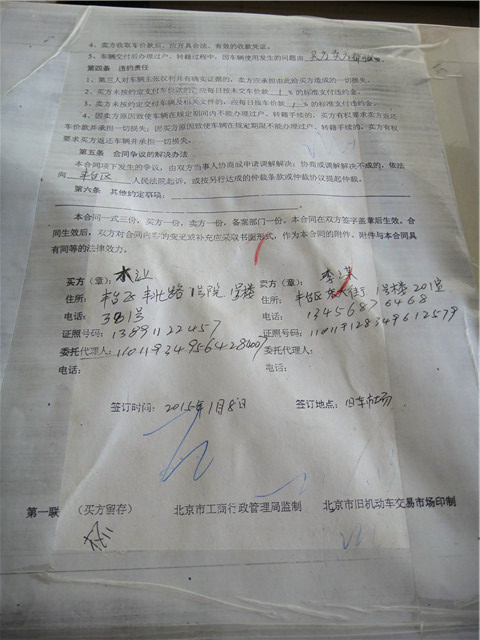 4、卖方收取车价款后,应开具合法、有效的收款凭证。
5、车辆交付后办理过户、转籍过程中,因车辆使用发生的问题由
第四条 违约责任
1、第三人对车辆主张权利并有确实证据的,卖方应承担由此给买方造成的一切损失。
2、买方未按约定支付车价款的,应每日按未交车价款 1 %的标准支付违约金。
3、卖方未按约定交付车辆及相关文件的,应每日按车价款 1 %的标准支付违约金。
4、因卖方原因致使车辆在规定期间内不能办理过户、转籍手续的,买方有权要求卖方返还
车价款并承担一切损失;因买方原因致使车辆在规定期限不能办理过户、转籍手续的,卖方有权
要求买方返还车辆并承担一切损失。
第五条 合同争议的解决办法
本合同项下发生的争议,由双方当事人协商或申请调解解决;协商或调解解决不成的,依法
向 丰台区 人民法院起诉,或按另行达成的仲裁条款或仲裁协议提起仲裁。
第六条 其他约定事项:
本合同一式三份,买方一份,卖方一份,备案部门一份。本合同在双方签字盖章后生效。合
同生效后,双方对合同内容的变更或补充应采取书面形式,作为本合同的附件。附件与本合同具
有同等的法律效力。
买方(章): 卖方(章):李
住所:丰台区丰北路 号院 号楼 住所:丰台区 大街 1号楼201室
电话:301号 电话:13456876468
证照号码:13891122457 证照号码:110119128349612579
委托代理人: 委托代理人:
电话: 电话:
签订时间:2015年1月8日 签订地点:旧车市场
第一联 (买方留存) 北京市工商行政管理局监制 北京市旧机动车交易市场印制